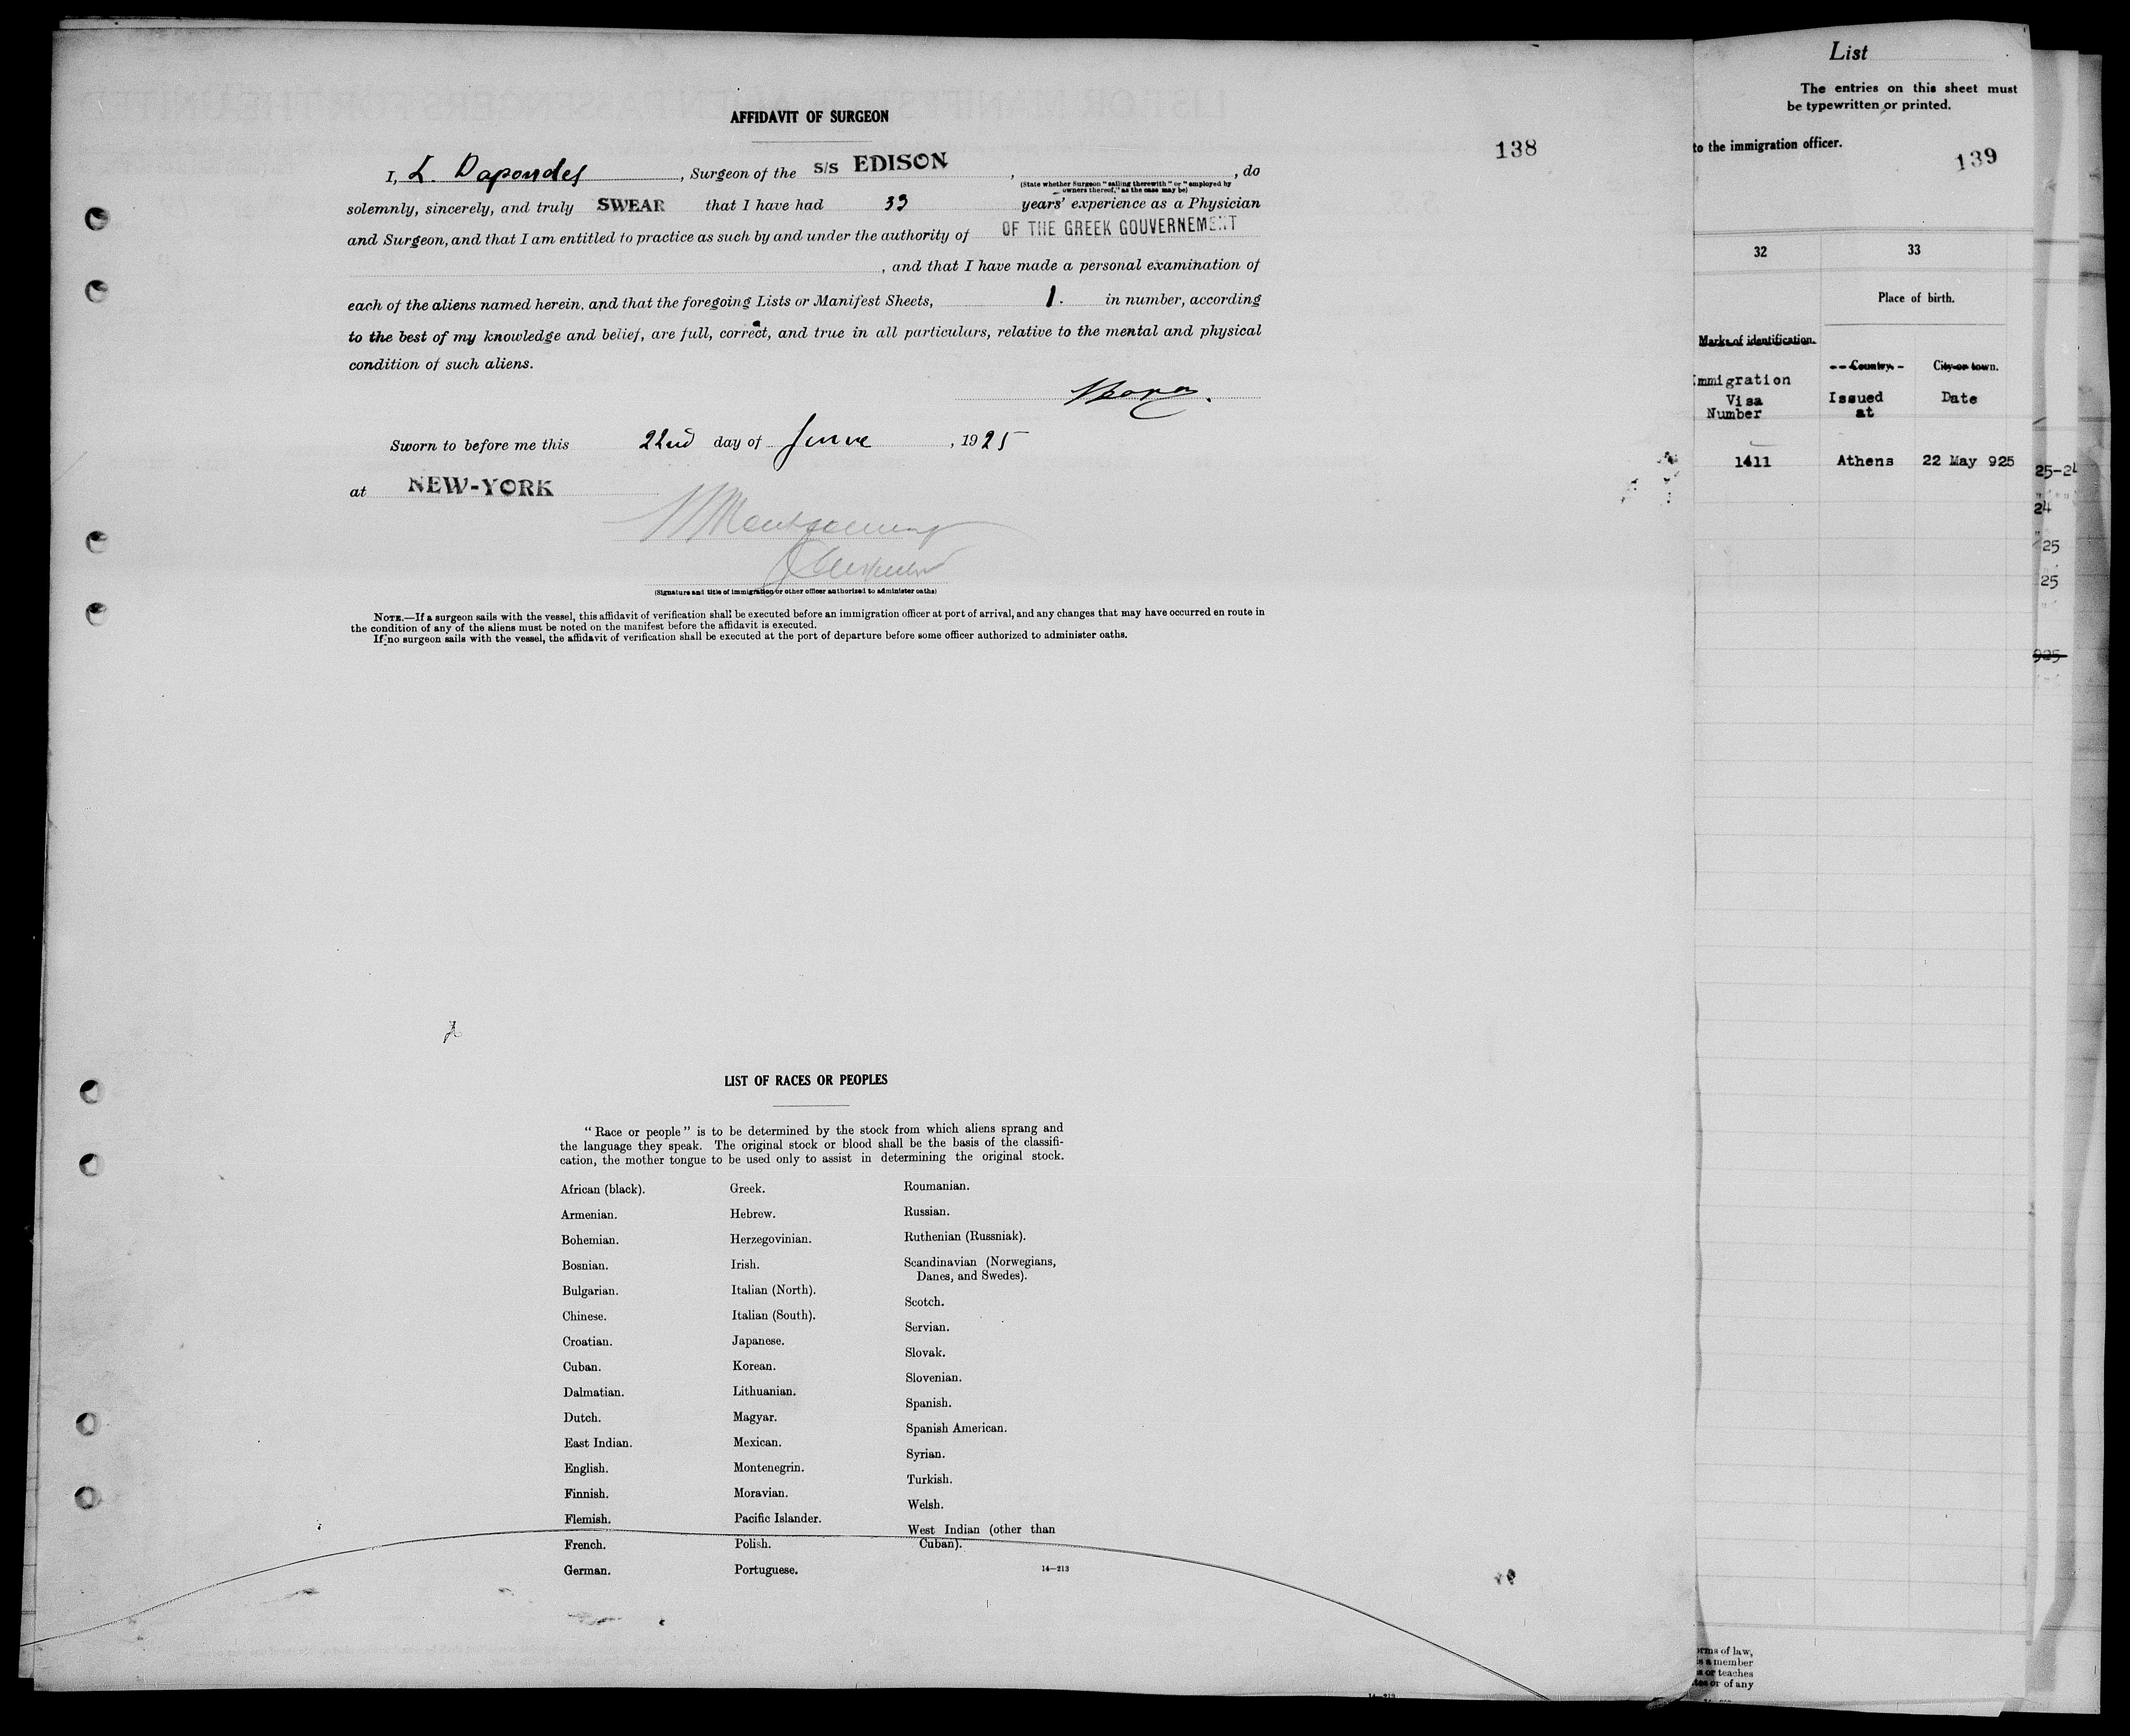 AFFIDAVIT OF SURGEON
138
I, L. Dapondes, Surgeon of the S/S EDISON, , do
(State whether Surgeon "sailing therewith" or "employed by owners thereof," as the case may be)
solemnly, sincerely, and truly SWEAR that I have had 33 years' experience as a Physician
and Surgeon, and that I am entitled to practice as such by and under the authority of OF THE GREEK GOUVERNEMENT
, and that I have made a personal examination of
each of the aliens named herein, and that the foregoing Lists or Manifest Sheets, 1. in number, according
to the best of my knowledge and belief, are full, correct, and true in all particulars, relative to the mental and physical
condition of such aliens.
Sworn to before me this 22nd day of June, 1925
at NEW-YORK
(Signature and title of immigration or other officer authorized to administer oaths)
NOTE.—If a surgeon sails with the vessel, this affidavit of verification shall be executed before an immigration officer at port of arrival, and any changes that may have occurred en route in
the condition of any of the aliens must be noted on the manifest before the affidavit is executed.
If no surgeon sails with the vessel, the affidavit of verification shall be executed at the port of departure before some officer authorized to administer oaths.
LIST OF RACES OR PEOPLES
"Race or people" is to be determined by the stock from which aliens sprang and
the language they speak. The original stock or blood shall be the basis of the classifi-
cation, the mother tongue to be used only to assist in determining the original stock.
African (black).
Armenian.
Bohemian.
Bosnian.
Bulgarian.
Chinese.
Croatian.
Cuban.
Dalmatian.
Dutch.
East Indian.
English.
Finnish.
Flemish.
French.
German.
Greek.
Hebrew.
Herzegovinian.
Irish.
Italian (North).
Italian (South).
Japanese.
Korean.
Lithuanian.
Magyar.
Mexican.
Montenegrin.
Moravian.
Pacific Islander.
Polish.
Portuguese.
Roumanian.
Russian.
Ruthenian (Russniak).
Scandinavian (Norwegians,
Danes, and Swedes).
Scotch.
Servian.
Slovak.
Slovenian.
Spanish.
Spanish American.
Syrian.
Turkish.
Welsh.
West Indian (other than
Cuban).
14—213
List
The entries on this sheet must
be typewritten or printed.
to the immigration officer.
139
32 33
Place of birth.
Marks of identification.
Country. City or town.
Immigration
Visa
Number
Issued
at
Date
1411 Athens 22 May 925
25-24
24
25
25
925
orms of law,
is a member
s or teaches
tes or of any